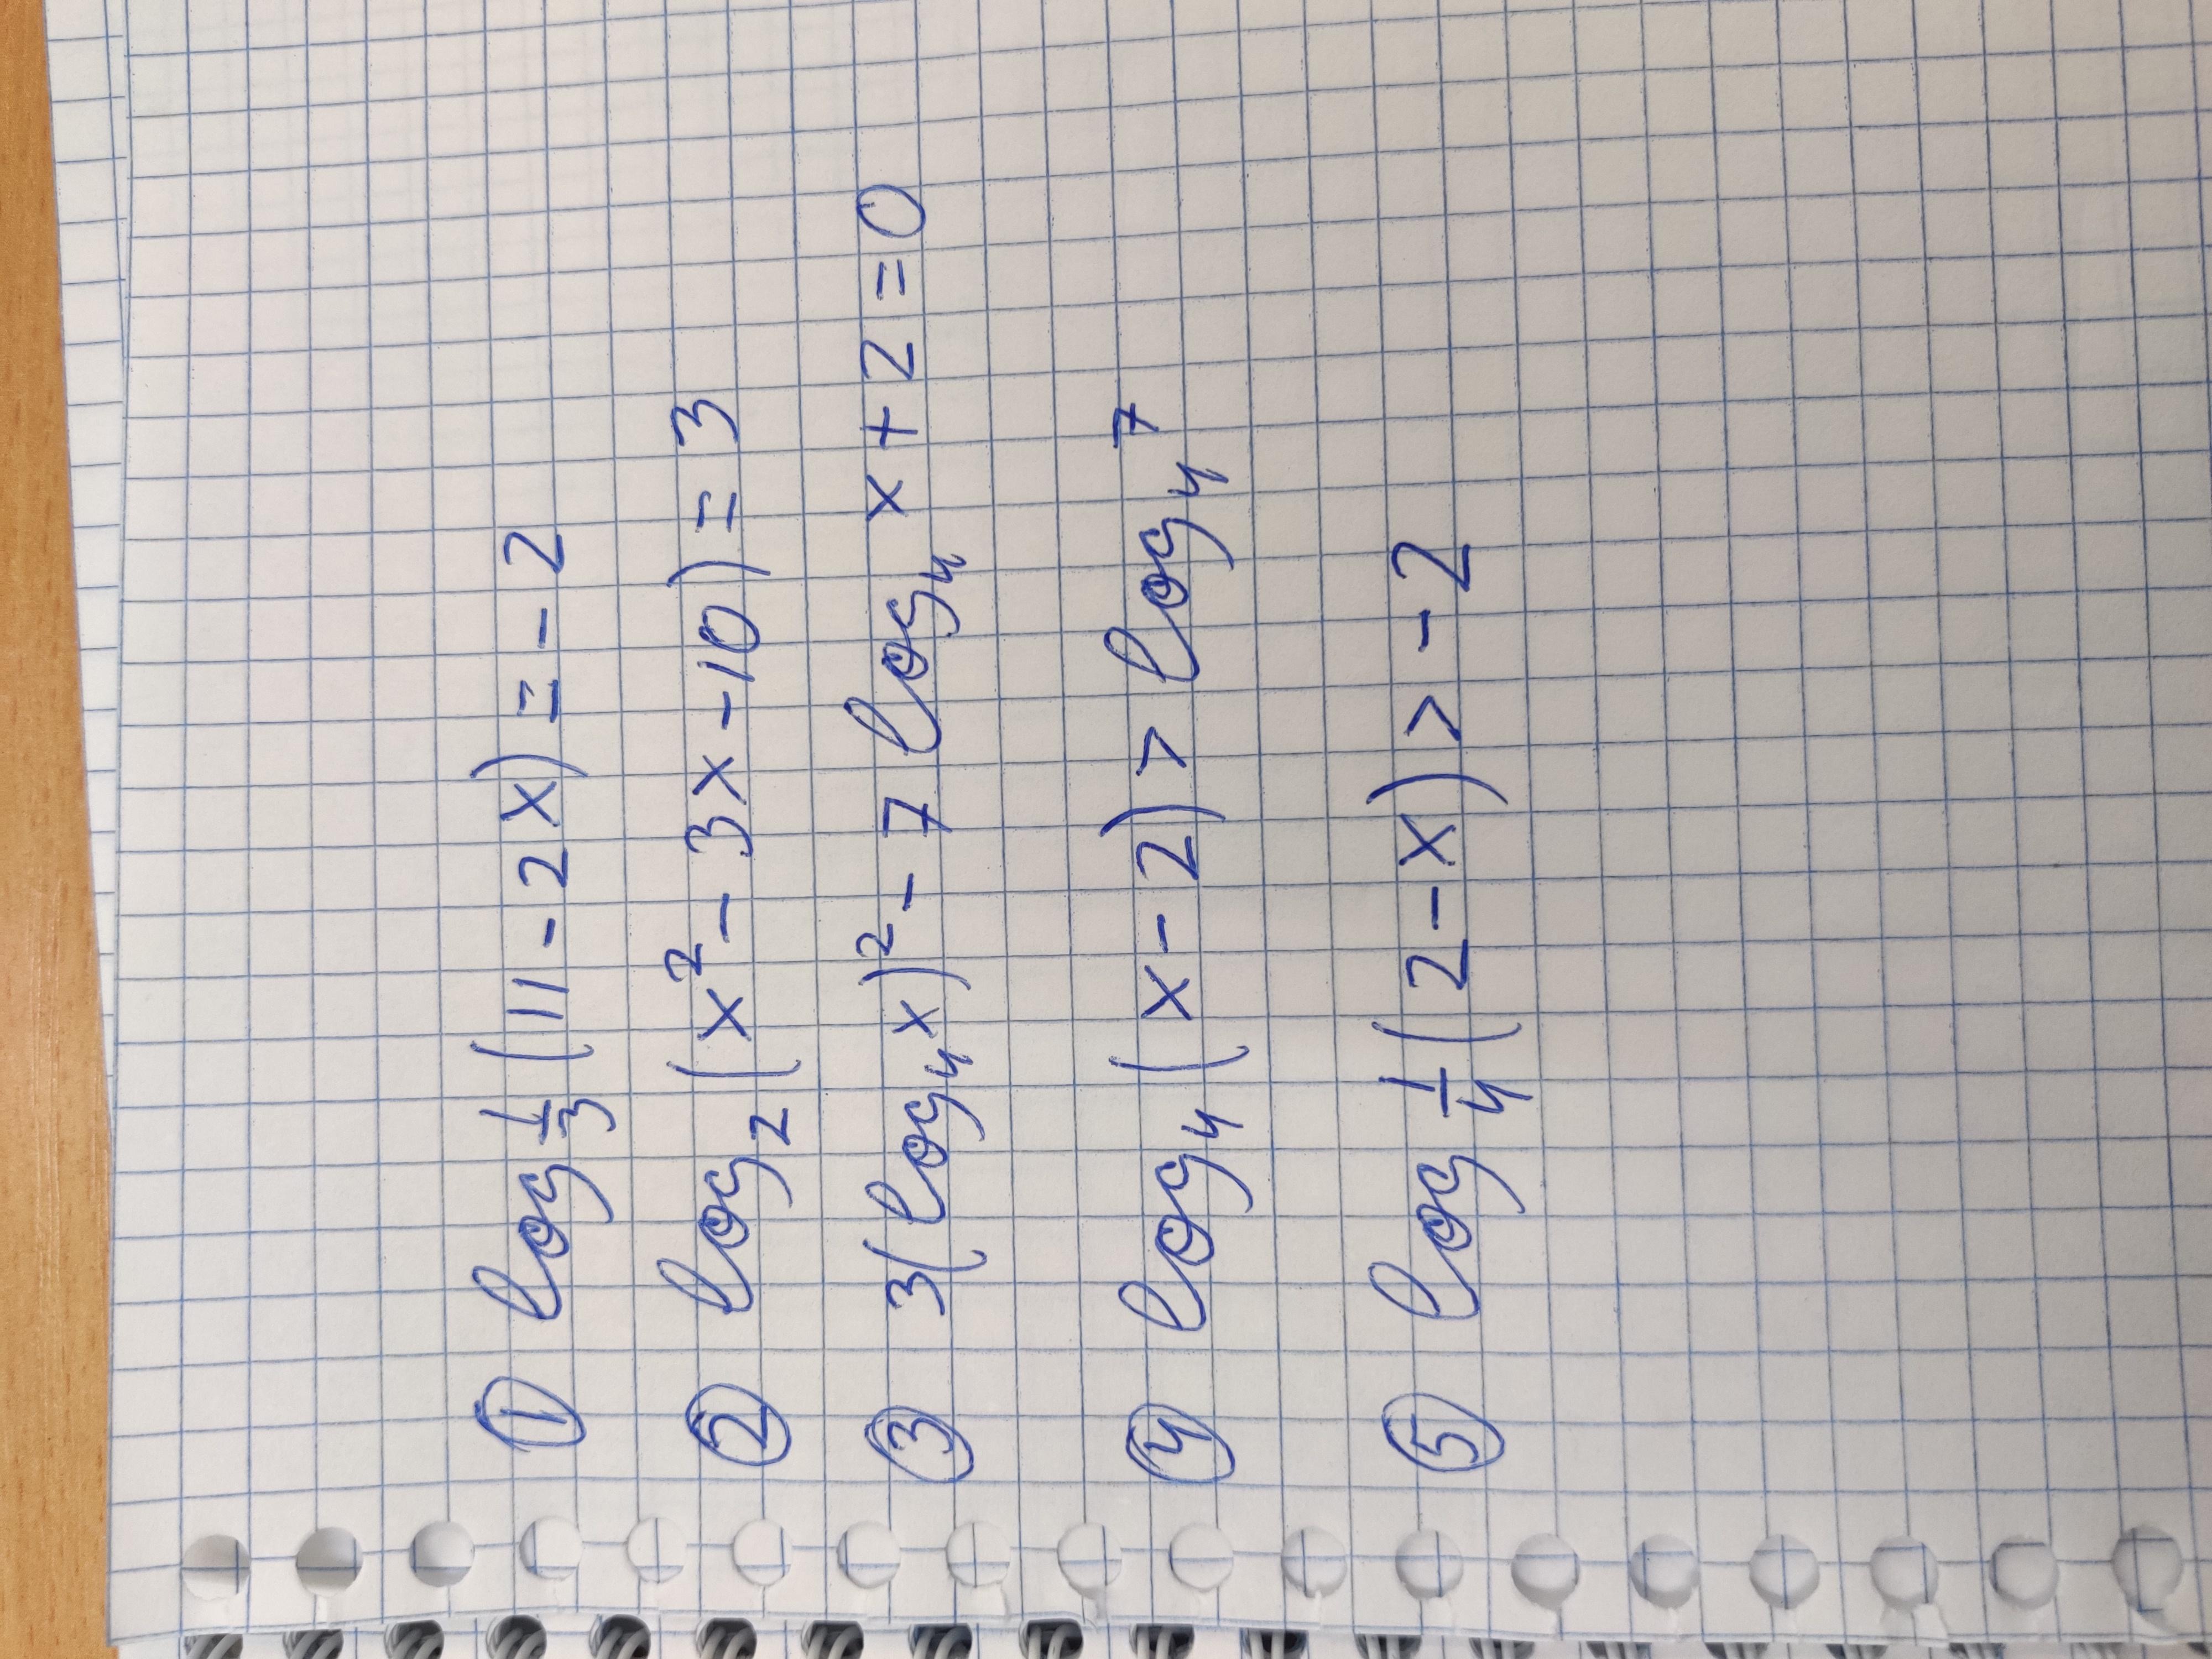 ① log 1/3 (11 - 2x) = -2
② log₂ (x² - 3x - 10) = 3
③ 3(log₄ x)² - 7 log₄ x + 2 = 0
④ log₄ (x - 2) > log₄ 7
⑤ log 1/4 (2 - x) > -2